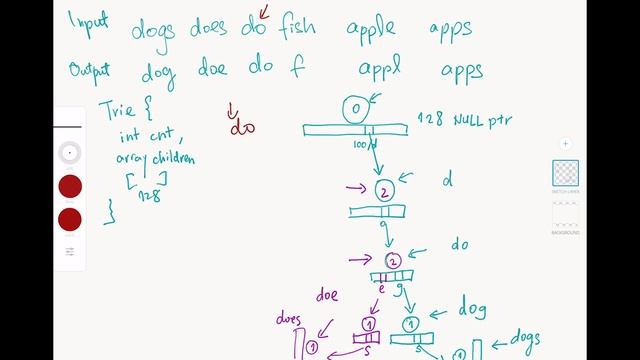 Input dogs does do fish apple apps
Output dog doe do f appl apps
Trie {
int cnt,
array children
[ ]
128
}
do
0
128 NULL ptr
100/d
2
d
o
2
do
e g
doe
dog
does
1
1
1
s
s
1
dogs